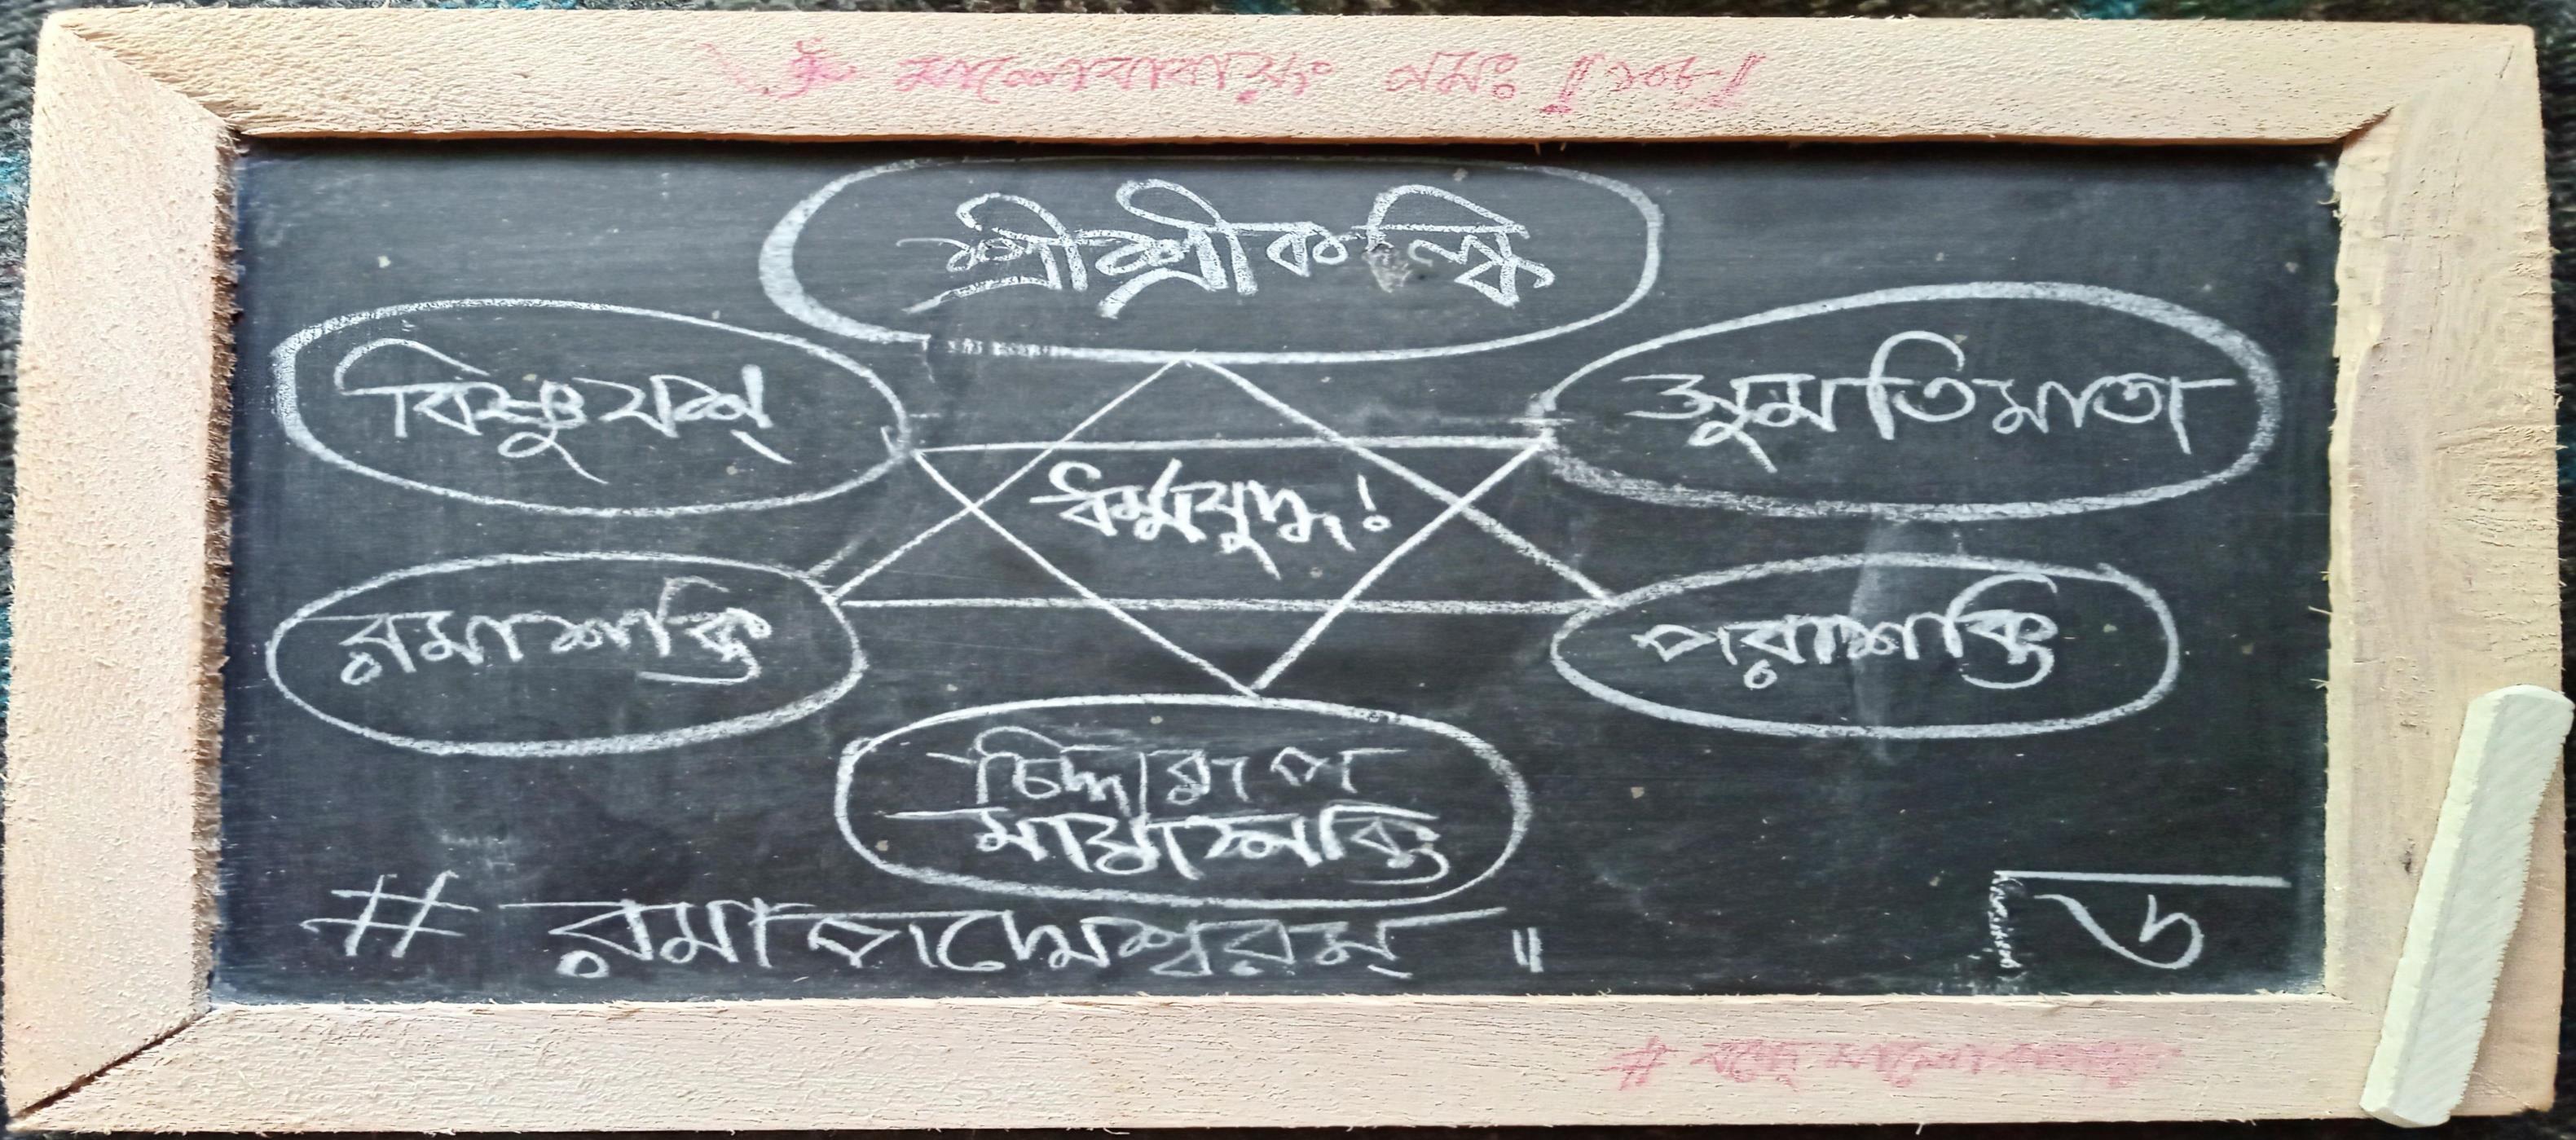 নমঃ ॥১০৮॥
শ্রীশ্রীকল্কি
বিষ্ণুযশ
সুমতিমাতা
ধর্ম্মযুদ্ধ!
রমাশক্তি
পরাশক্তি
চিদ্দারূপ
মায়াশক্তি
# রমাপদ্মেশ্বরম্ ॥
৬